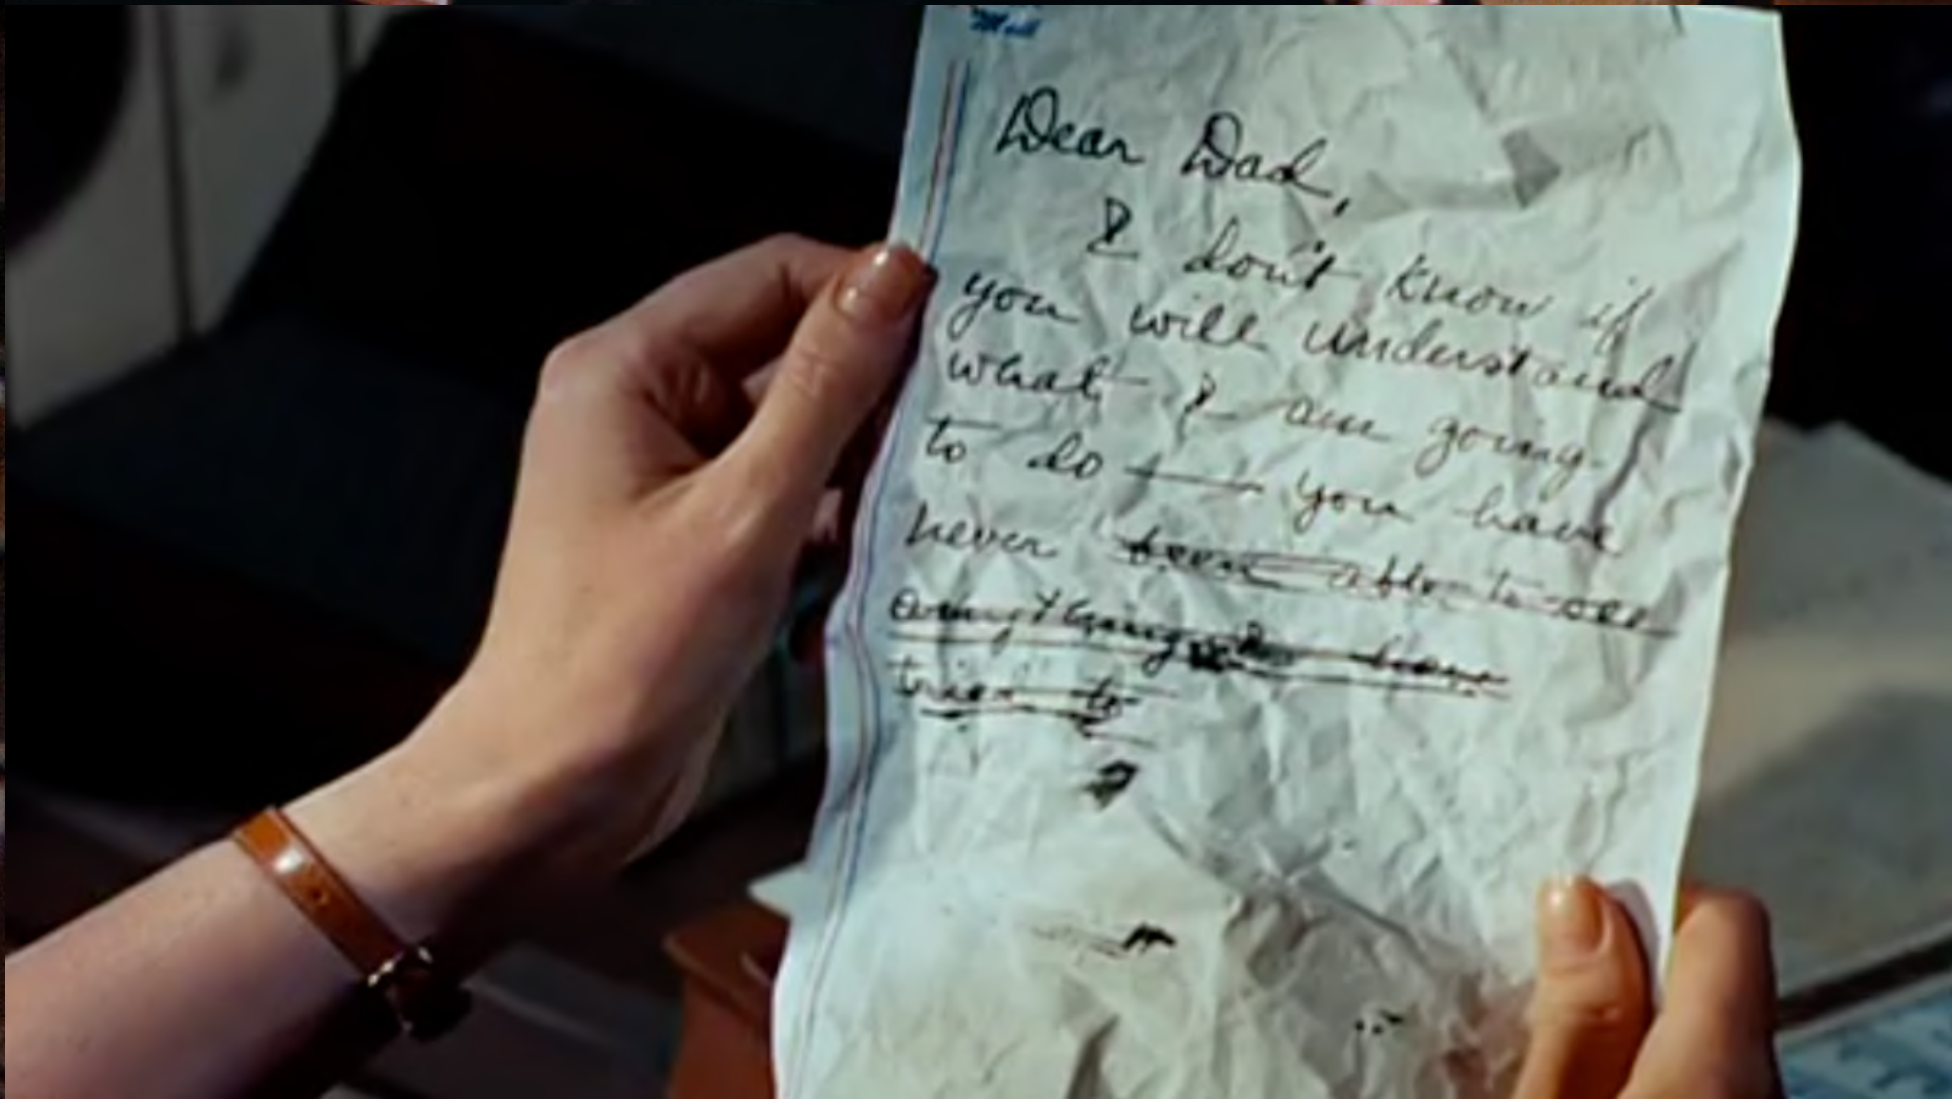 Dear Dad,
I don't know if
you will understand
what I am going
to do — you have
never been able to see
anything
tried to